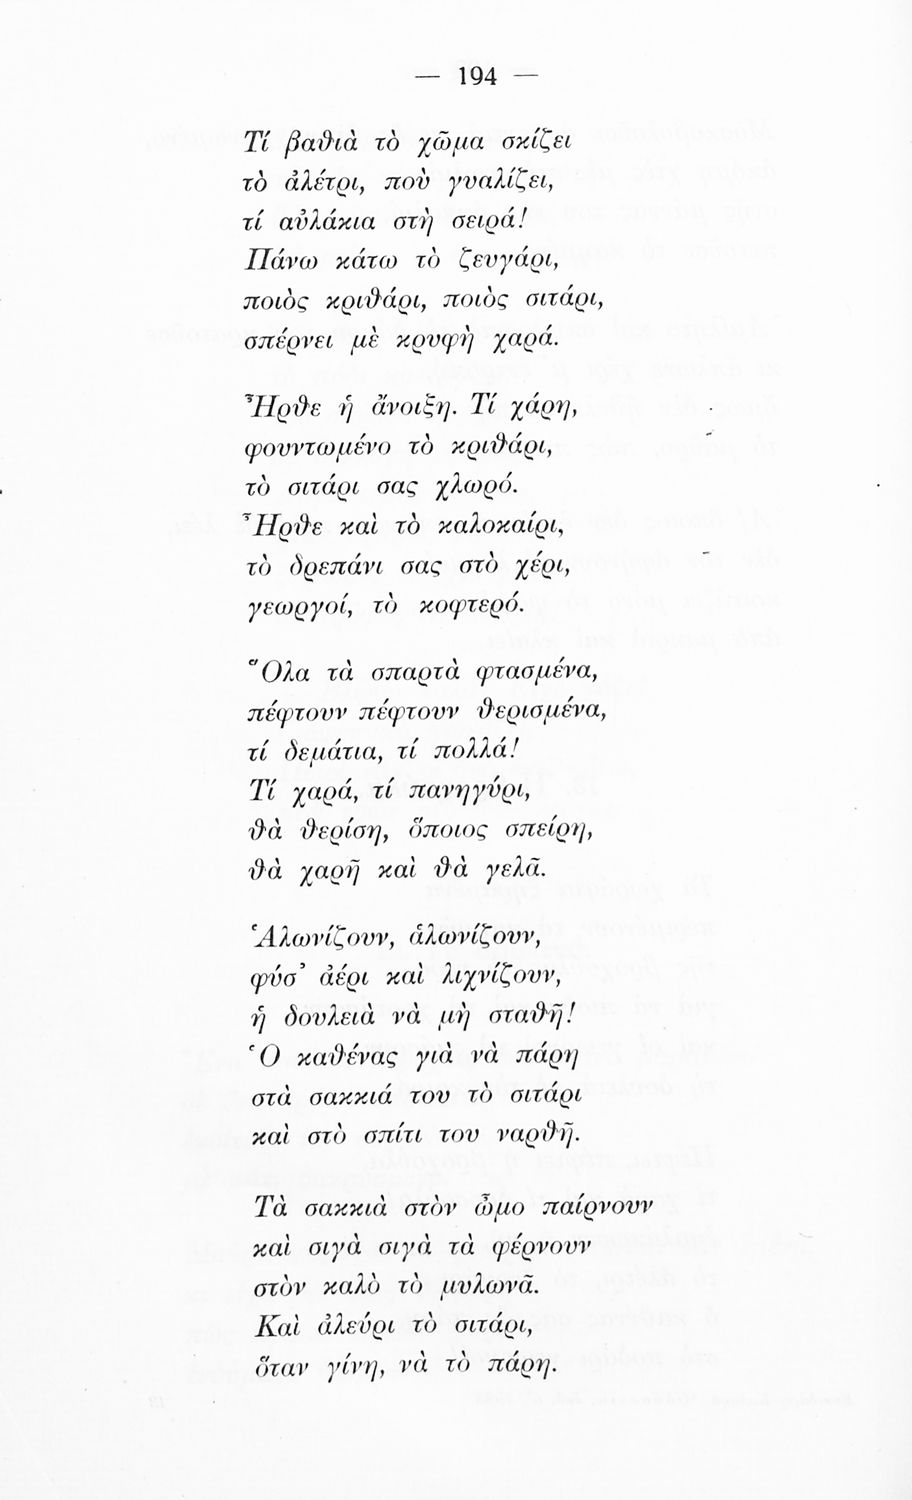 — 194 —
Τί βαθιὰ τὸ χῶμα σκίζει
τὸ ἀλέτρι, ποὺ γυαλίζει,
τί αὐλάκια στὴ σειρά!
Πάνω κάτω τὸ ζευγάρι,
ποιὸς κριθάρι, ποιὸς σιτάρι,
σπέρνει μὲ κρυφὴ χαρά.
Ἦρθε ἡ ἄνοιξη. Τί χάρη,
φουντωμένο τὸ κριθάρι,
τὸ σιτάρι σας χλωρό.
Ἦρθε καὶ τὸ καλοκαίρι,
τὸ δρεπάνι σας στὸ χέρι,
γεωργοί, τὸ κοφτερό.
Ὅλα τὰ σπαρτὰ φτασμένα,
πέφτουν πέφτουν θερισμένα,
τί δεμάτια, τί πολλά!
Τί χαρά, τί πανηγύρι,
θὰ θερίση, ὅποιος σπείρη,
θὰ χαρῆ καὶ θὰ γελᾶ.
Ἁλωνίζουν, ἁλωνίζουν,
φύσ᾿ ἀέρι καὶ λιχνίζουν,
ἡ δουλειὰ νὰ μὴ σταθῆ!
Ὁ καθένας γιὰ νὰ πάρη
στὰ σακκιά του τὸ σιτάρι
καὶ στὸ σπίτι του ναρθῆ.
Τὰ σακκιὰ στὸν ὦμο παίρνουν
καὶ σιγὰ σιγὰ τὰ φέρνουν
στὸν καλὸ τὸ μυλωνᾶ.
Καὶ ἀλεύρι τὸ σιτάρι,
ὅταν γίνη, νὰ τὸ πάρη.